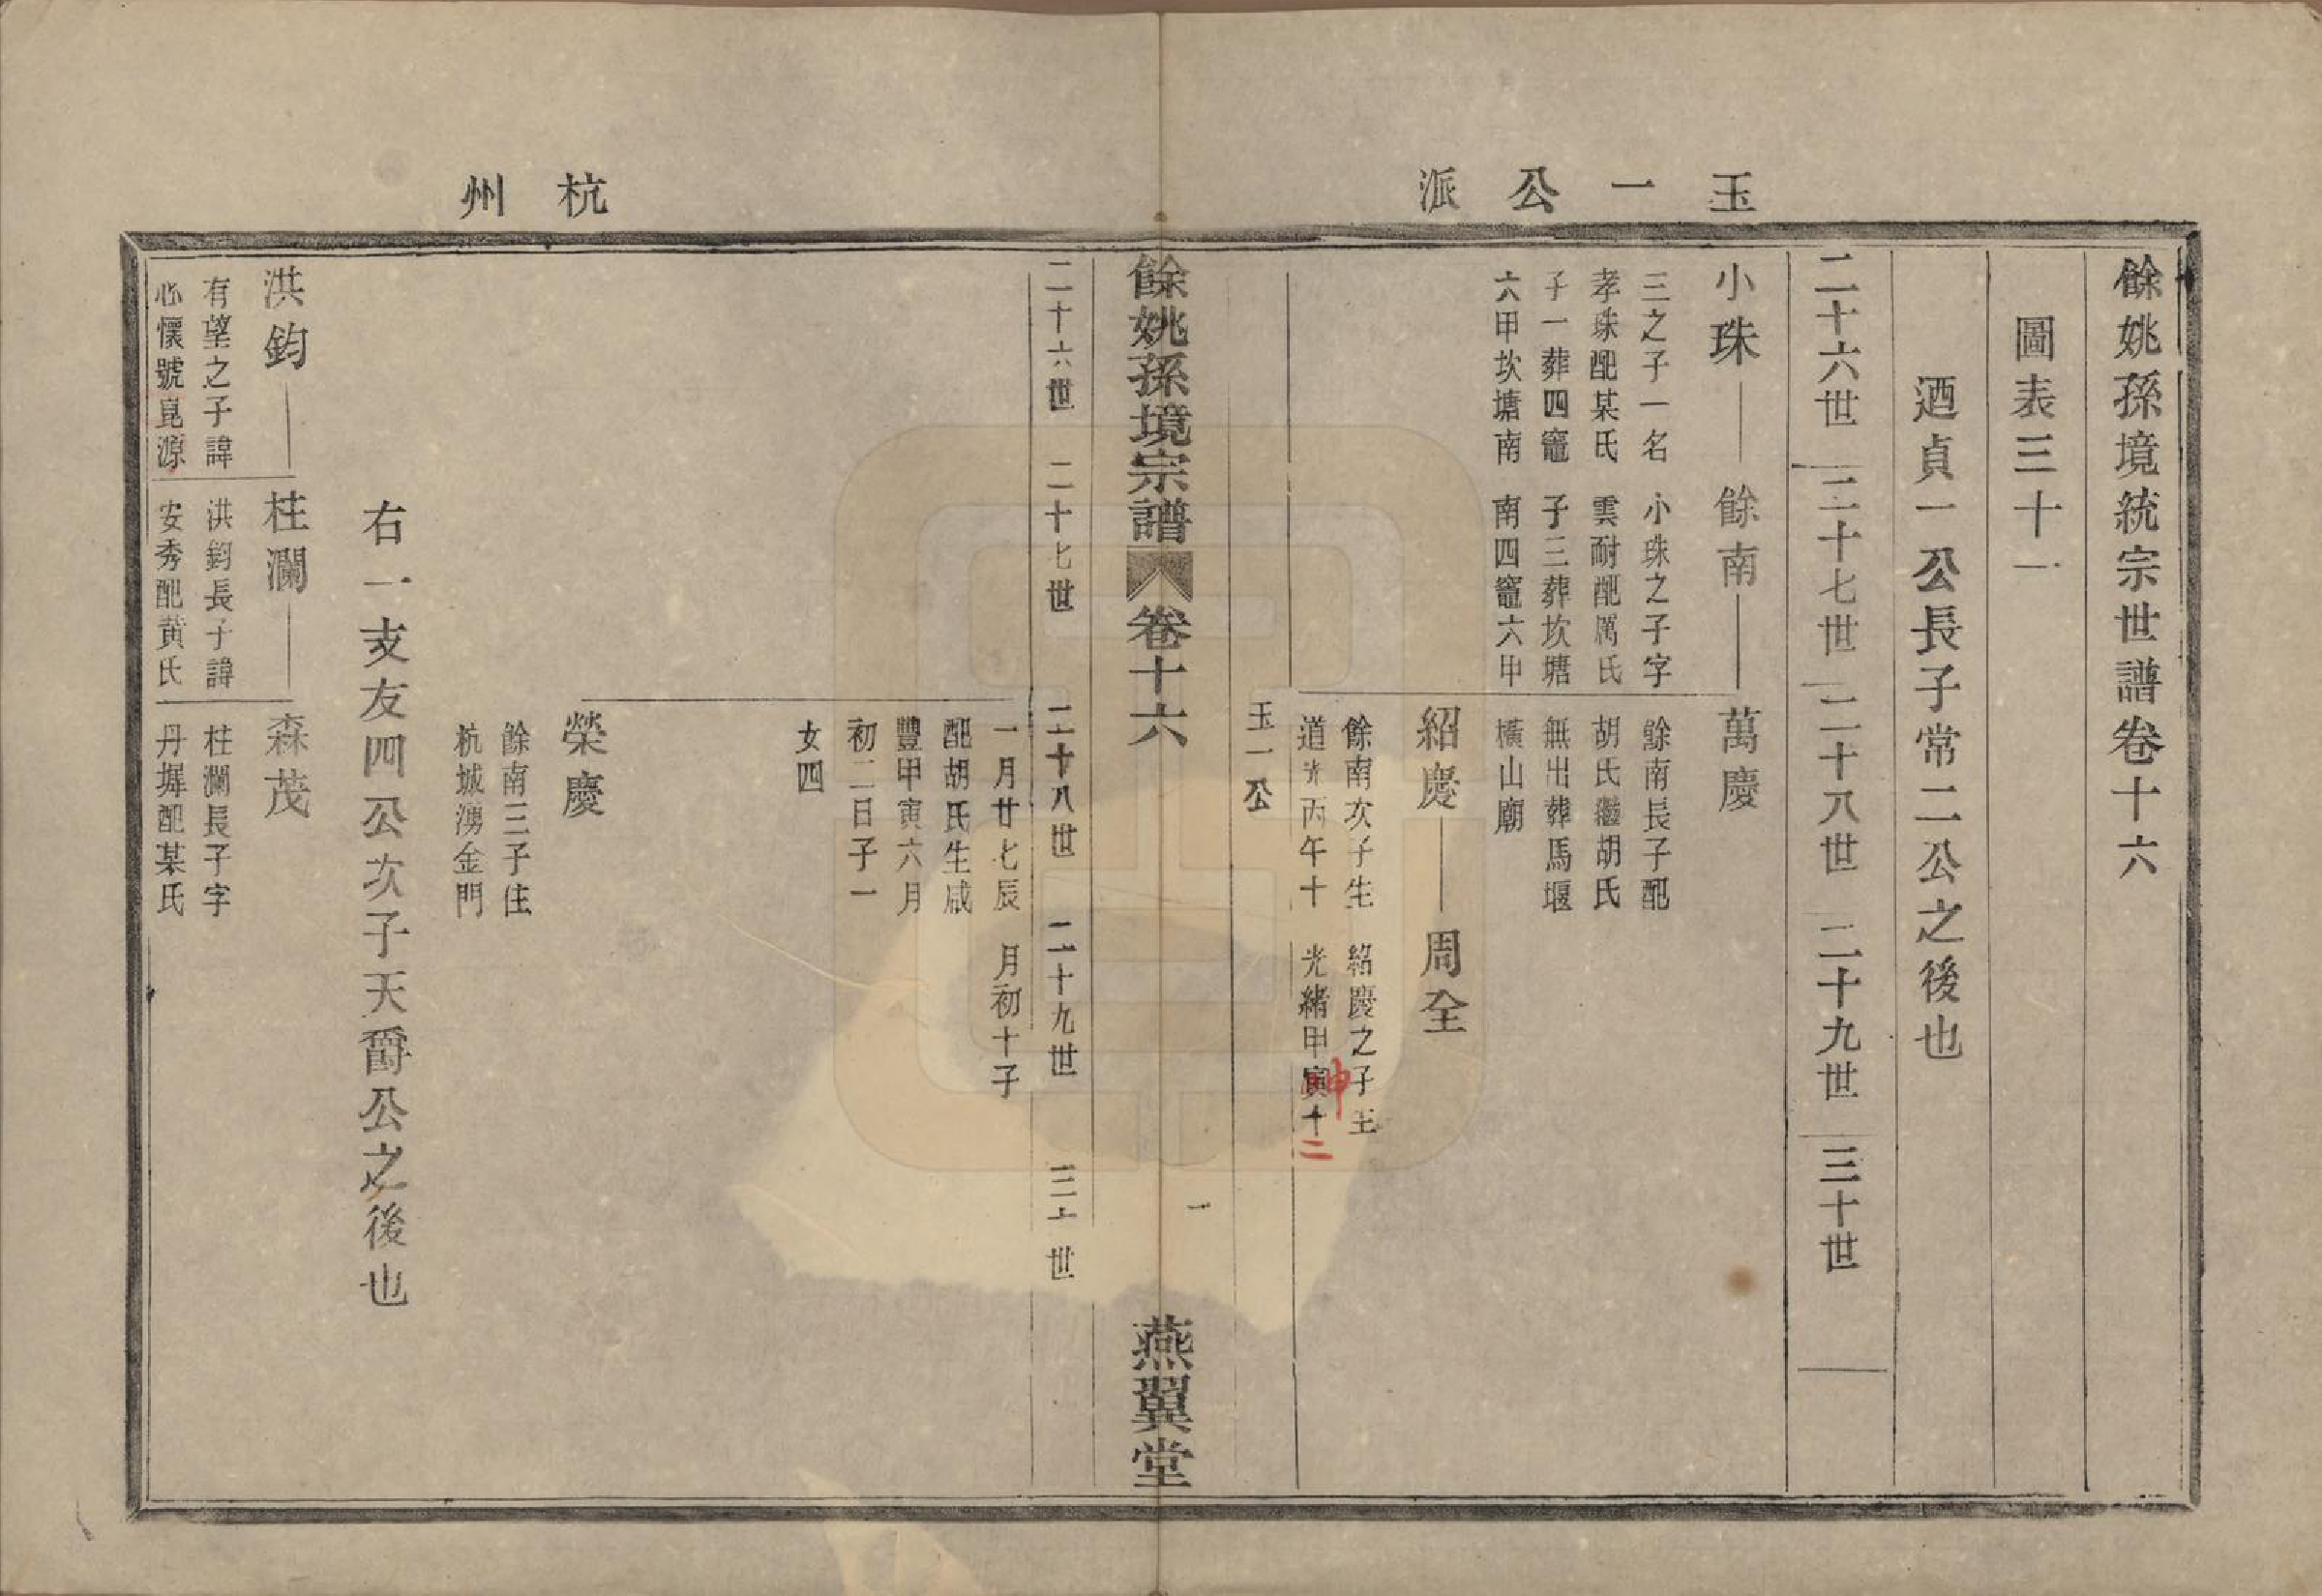 玉一公派
餘姚孫境統宗世譜卷十六
圖表三十一
迺貞一公長子常二公之後也
二十六世
二十七世
二十八世
二十九世
三十世
小珠
三之子一名
孝珠配某氏
子一葬四竈
六甲坎塘南
餘南
小珠之子字
雲耐配厲氏
子三葬坎塘
南四竈六甲
萬慶
餘南長子配
胡氏繼胡氏
無出葬馬堰
橫山廟
紹慶
餘南次子生
道光丙午十
周全
紹慶之子生
光緒甲寅十
申
二
玉一公
餘姚孫境宗譜 卷十六
一
燕翼堂
杭州
二十六世
二十七世
二十八世
二十九世
三十世
一月廿七辰
配胡氏生咸
豐甲寅六月
初二日子一
女四
月初十子
榮慶
餘南三子住
杭城湧金門
右一支友四公次子天爵公之後也
洪鈞
有望之子諱
心懷號崑源
柱瀾
洪鈞長子諱
安秀配黃氏
森茂
柱瀾長子字
丹墀配某氏